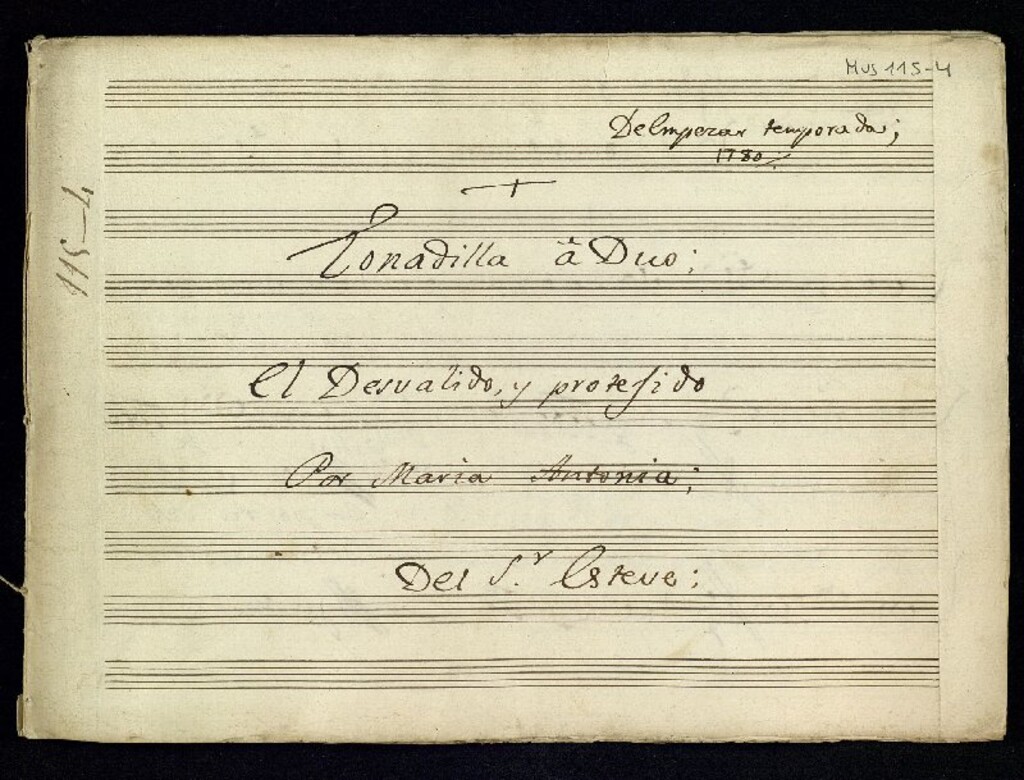 Mus 115-4
De Empezar temporada;
1780
115-4
Tonadilla â Duo;
El Desvalido, y protesido
Por Maria Antonia;
Del S.r Esteve;